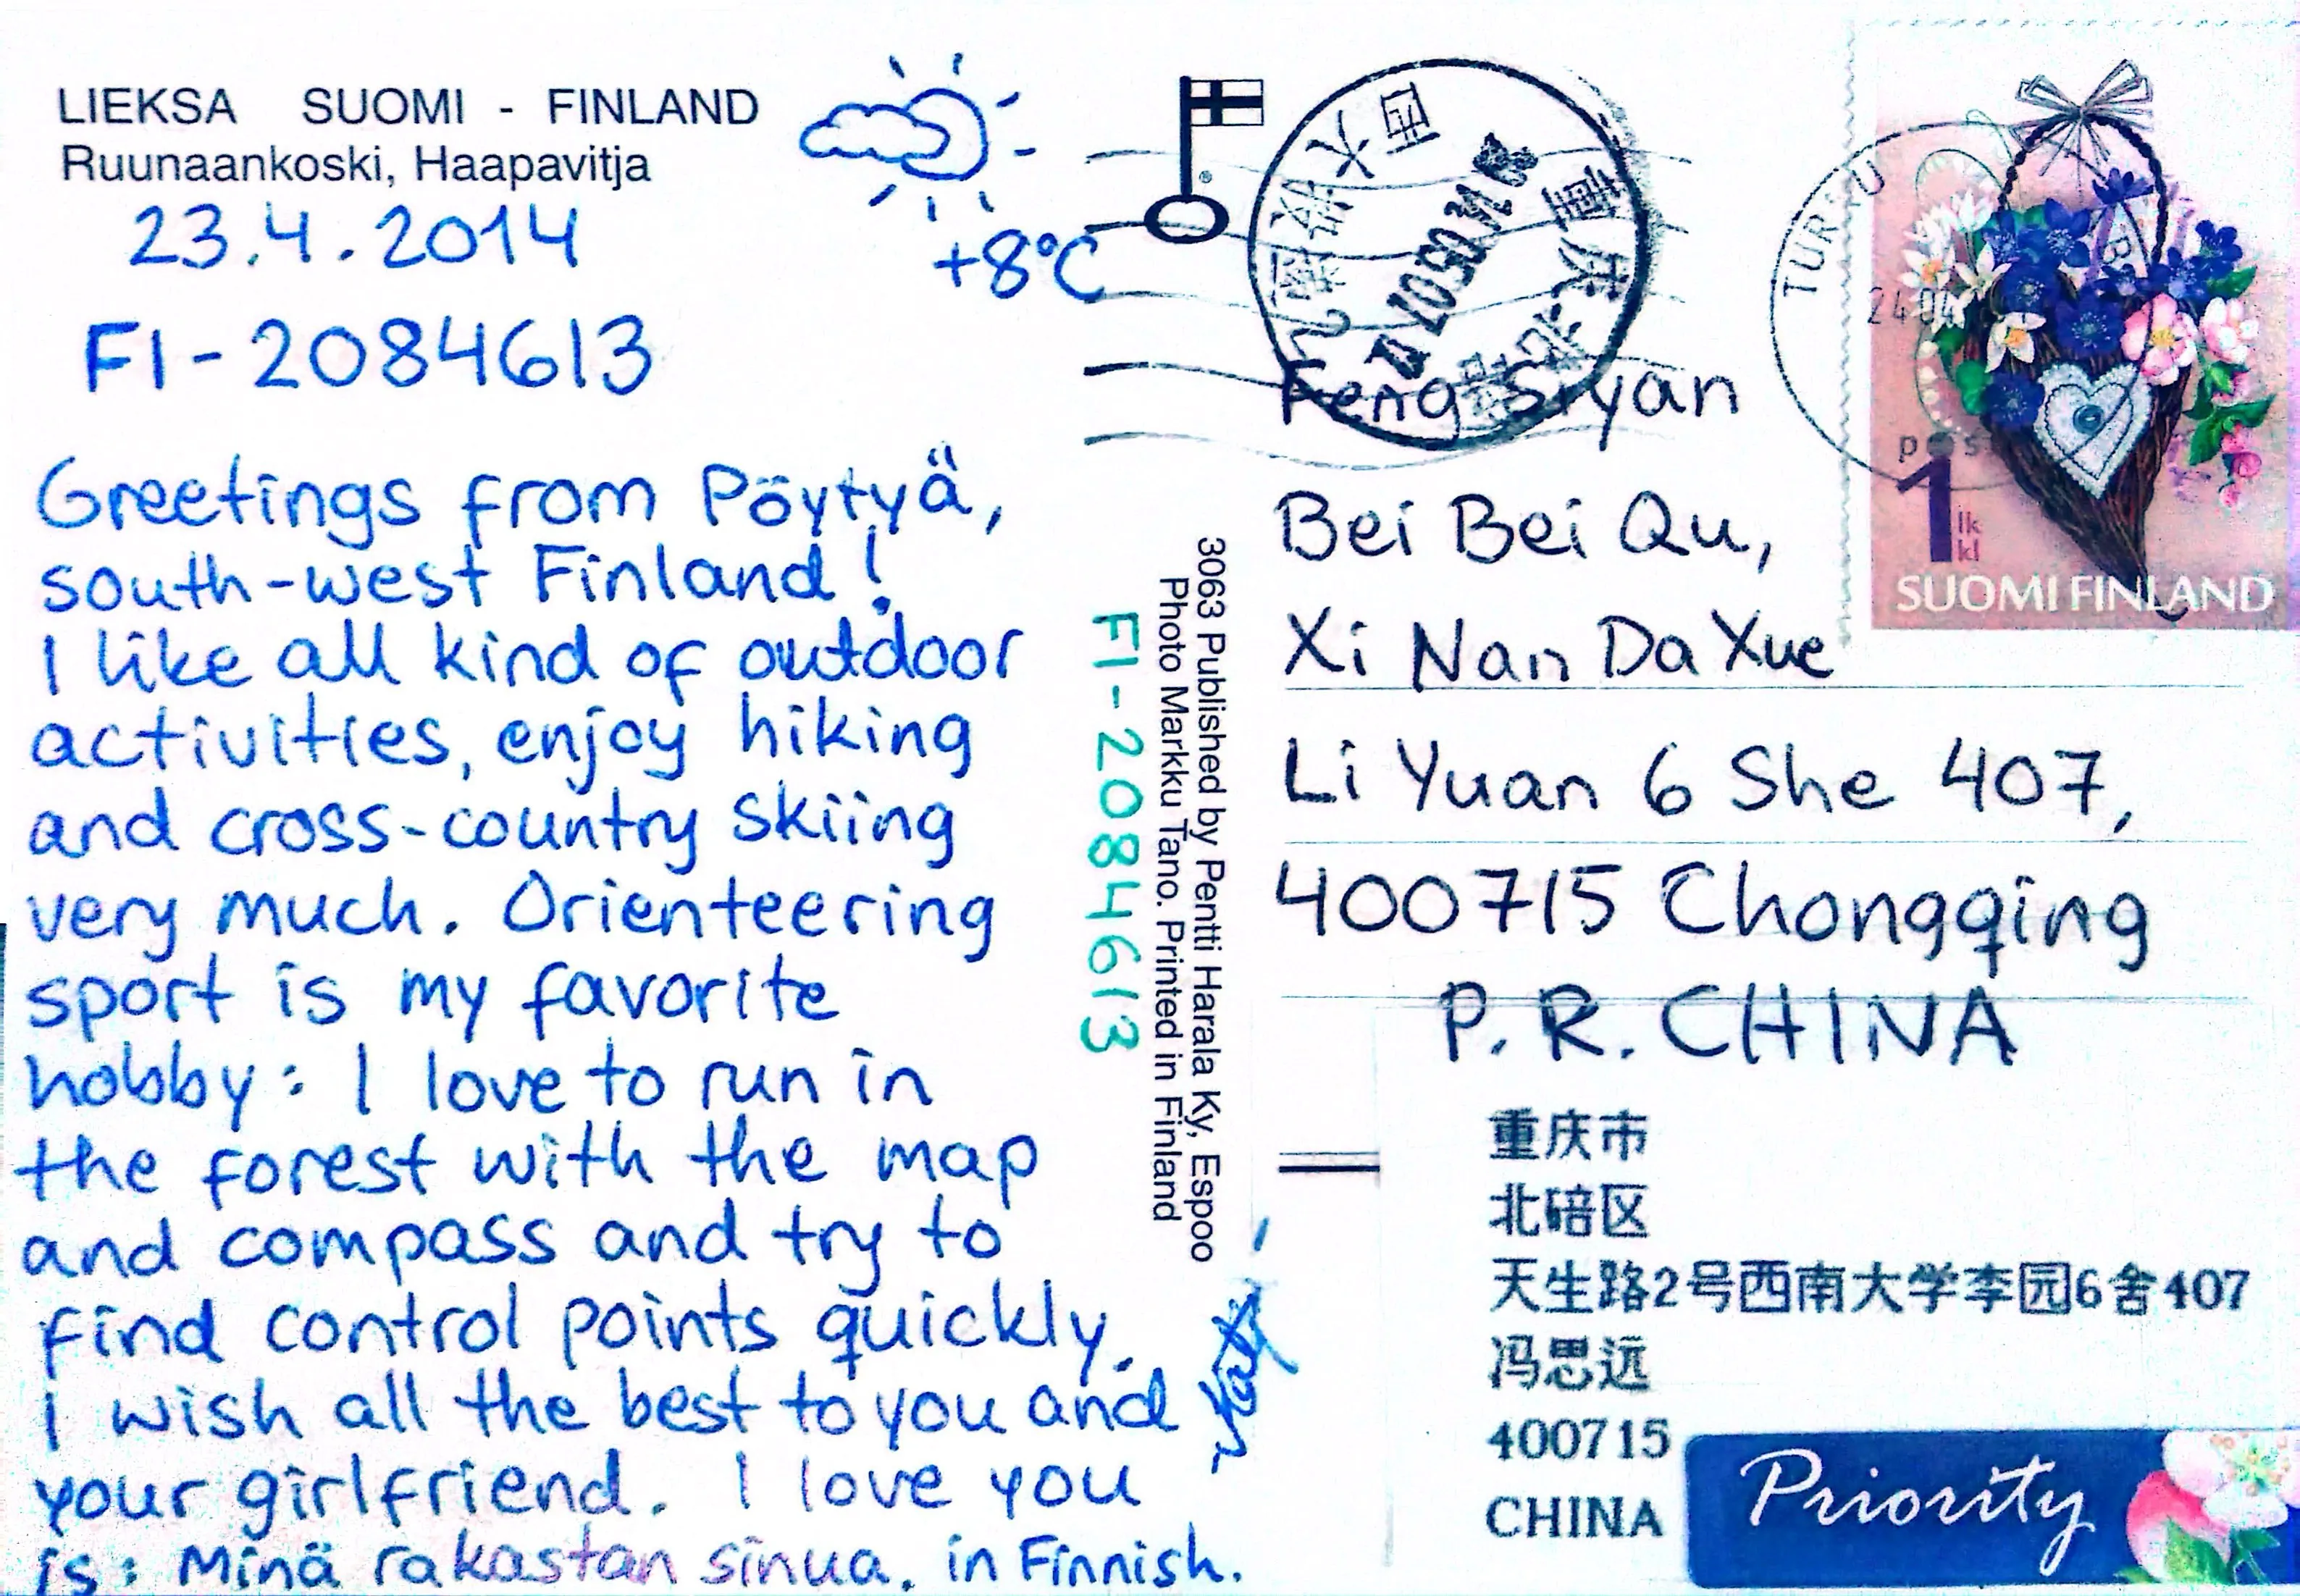 LIEKSA SUOMI - FINLAND
Ruunaankoski, Haapavitja
23.4.2014
+8°C
FI-2084613
Greetings from Pöytyä,
south-west Finland!
I like all kind of outdoor
activities, enjoy hiking
and cross-country skiing
very much. Orienteering
sport is my favorite
hobby: I love to run in
the forest with the map
and compass and try to
find control points quickly.
I wish all the best to you and
your girlfriend. I love you
is: Minä rakastan sinua. in Finnish.
FI-2084613
3063 Published by Pentti Harala Ky, Espoo
Photo Markku Tano. Printed in Finland
TURKU
24.04
posti
1 lk
kl
SUOMI FINLAND
Feng Siyan
Bei Bei Qu,
Xi Nan Da Xue
Li Yuan 6 She 407,
400715 Chongqing
P. R. CHINA
重庆市
北碚区
天生路2号西南大学李园6舍407
冯思远
400715
CHINA
Priority